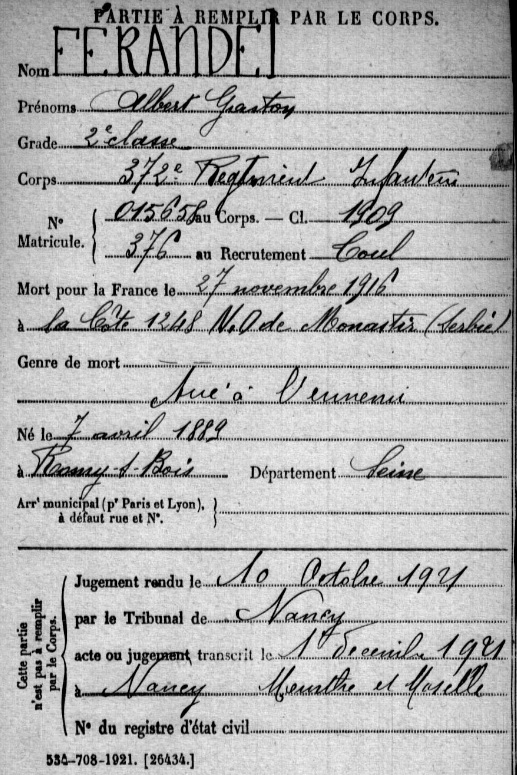 PARTIE À REMPLIR PAR LE CORPS.
Nom FÉRANDEL
Prénoms Albert Gaston
Grade 2e classe
Corps 372e Régiment Infanterie
N° Maticule. { 015658 au Corps. — Cl. 1909
376 au Recrutement Toul
Mort pour la France le 27 novembre 1916
à la Côte 1248 N.O de Monastir (Serbie)
Genre de mort
Tué à l'ennemi
Né le 7 avril 1889
à Rosny-s-Bois Département Seine
Arrt municipal (pr Paris et Lyon),
à défaut rue et N°.
Cette partie n'est pas à remplir par le Corps.
Jugement rendu le 10 Octobre 1921
par le Tribunal de Nancy
acte ou jugement transcrit le 1 décembre 1921
à Nancy Meurthe et Moselle
N° du registre d'état civil
534-708-1921. [26434.]